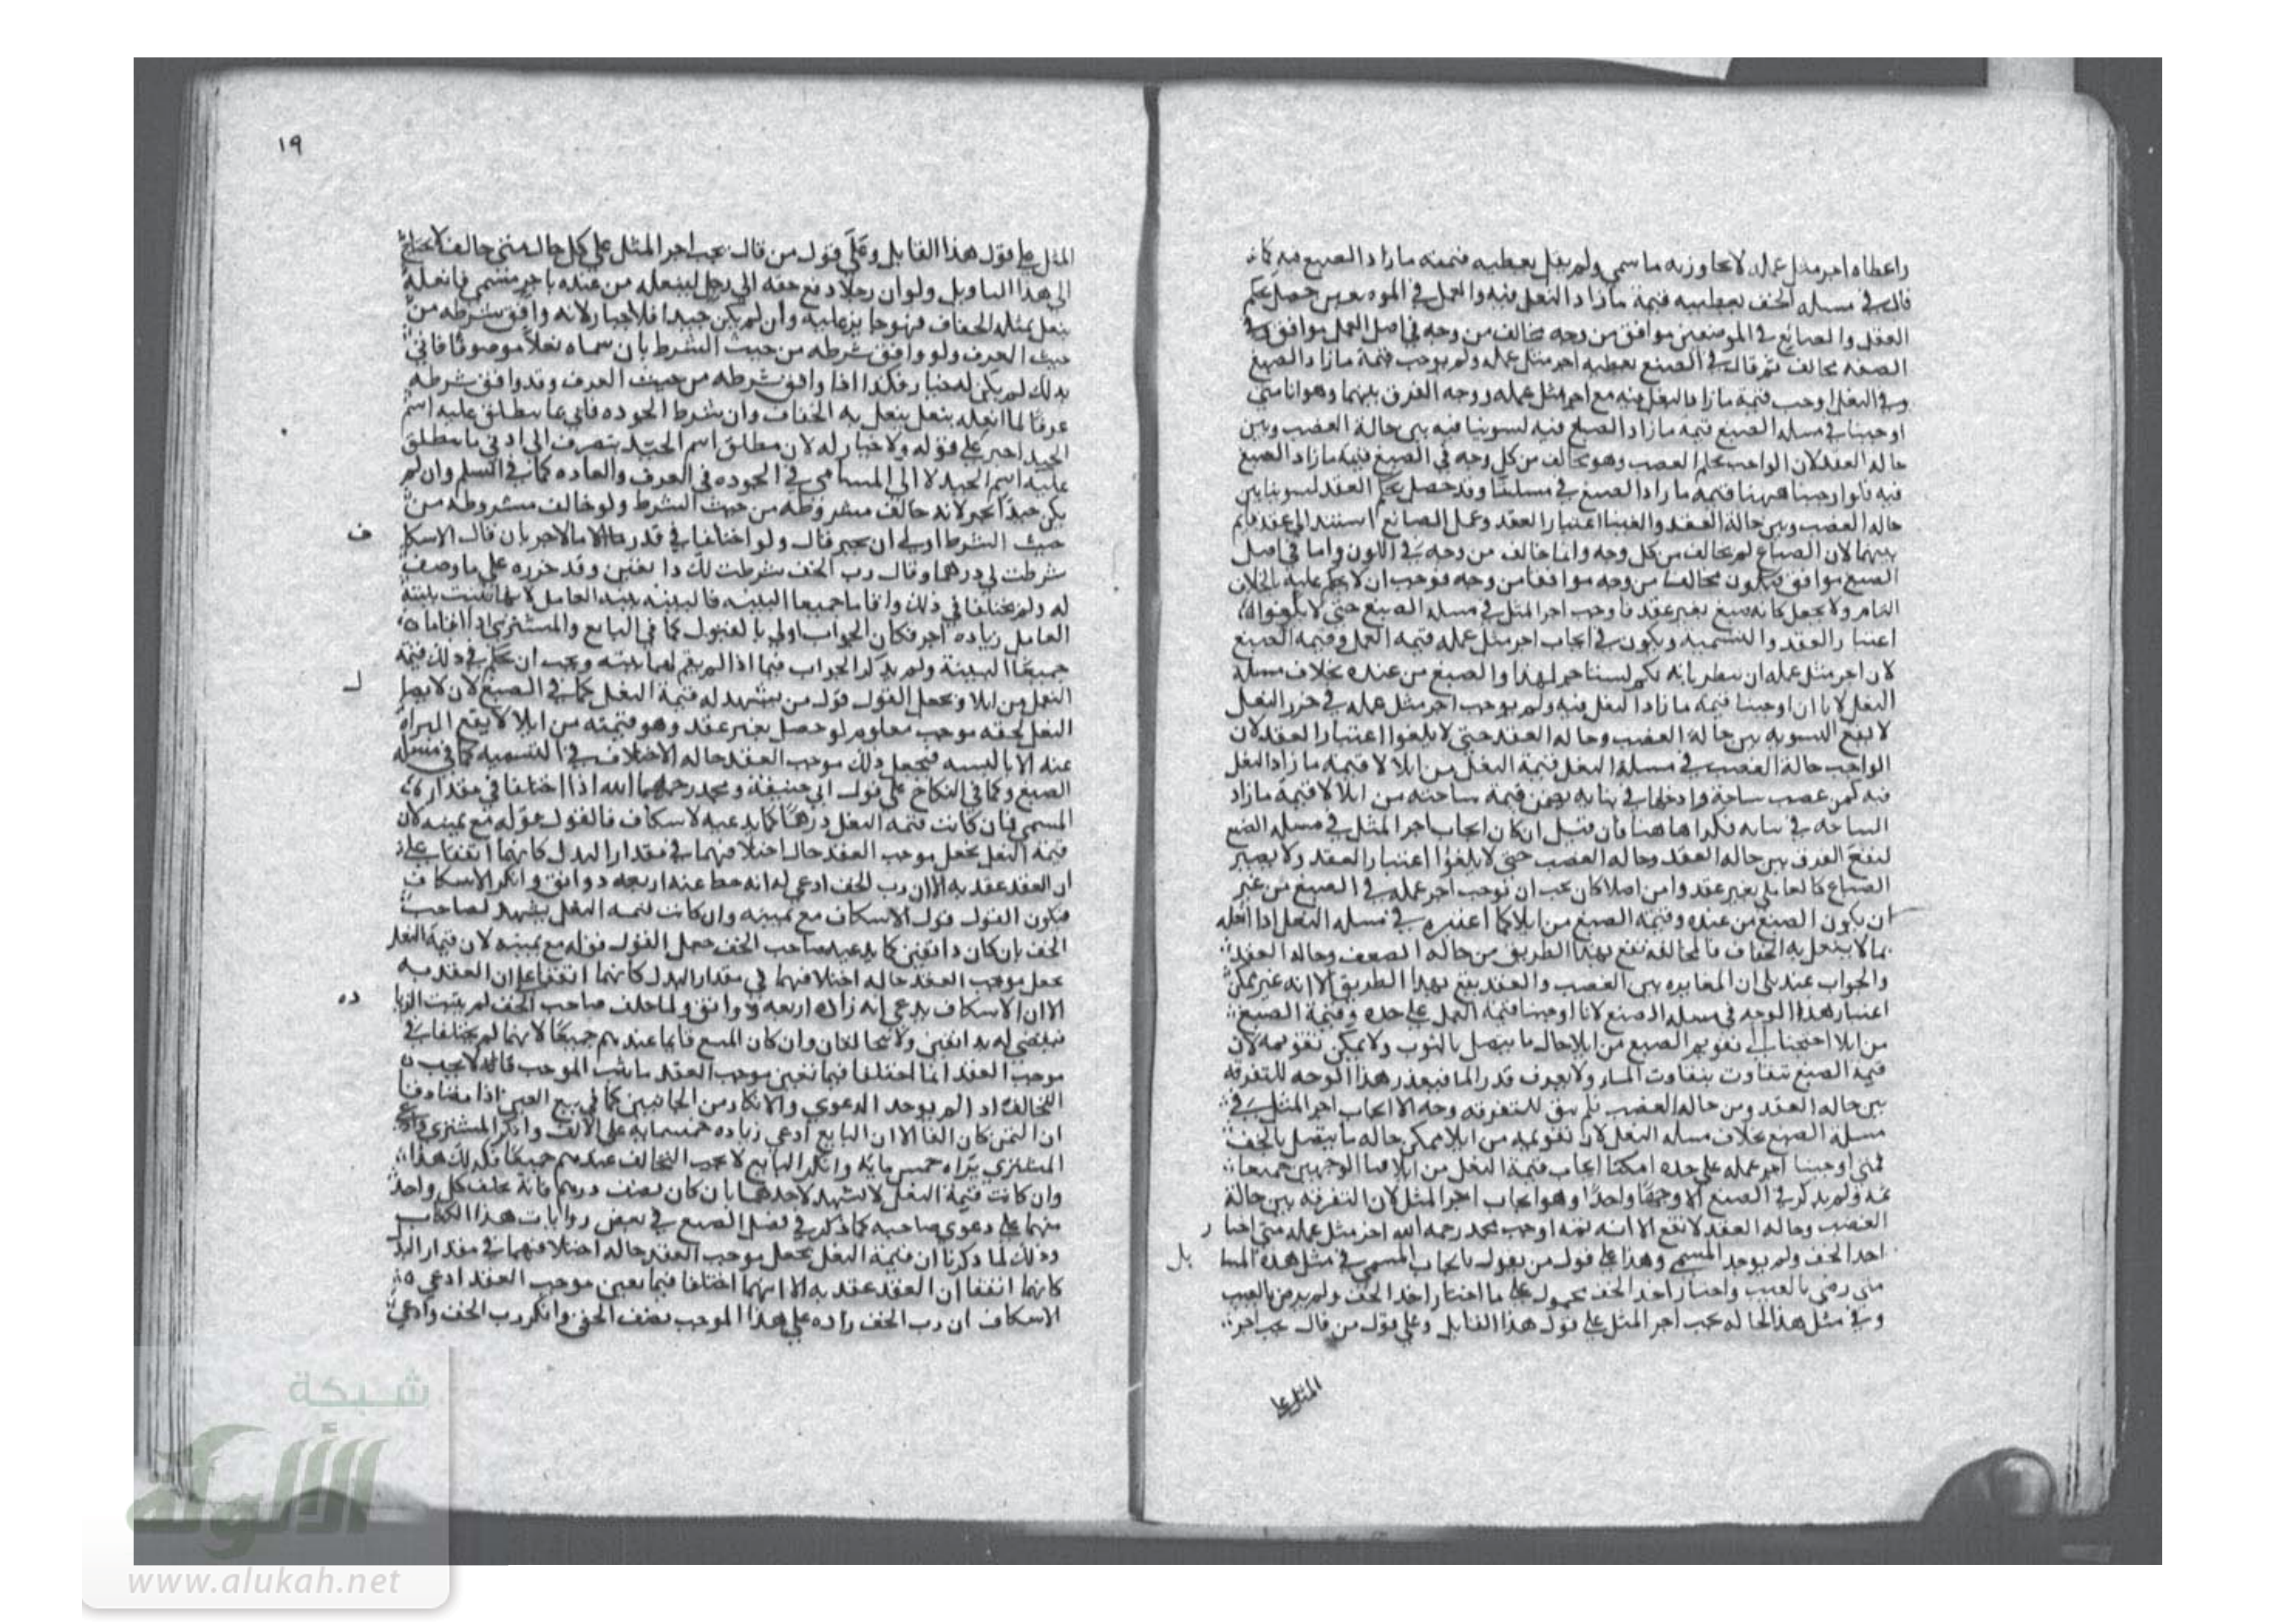 واعطاه اجر مثل عمله لا يجاوز به ما سمي ولم يقل يعطيه قيمته ما زاد الصبغ فيه كما
قال في مسله الخف يعطيه قيمة ما زاد النعل فيه والعمل في الموضعين حصل بحكم
العقد والصانع في الموضعين موافق من وجه مخالف من وجه في اصل العمل موافق وفي
الصفه مخالف ثم قال في الصبغ يعطيه اجر مثل عمله ولم يوجب قيمة ما زاد الصبغ
وفي النعل اوجب قيمة ما زاد النعل فيه مع اجر مثل عمله ووجه الفرق بينهما وهو انا متى
اوجبنا في مسله الصبغ قيمه ما زاد الصبغ فيه لسوينا فيه بين حالة الغصب وبين
حاله العقد لان الواجب بحكم الغصب وهو مخالف من كل وجه في الصبغ قيمة ما زاد الصبغ
فيه فلو اوجبنا ههنا قيمه ما زاد الصبغ في مسلتنا وقد حصل بحكم العقد لسوينا بين
حاله الغصب وبين حالة العقد والغينا اعتبار العقد وعمل الصانع استند الى عقد قايم
بينهما لان الصباغ لم يخالف من كل وجه وانما خالف من وجه في اللون واما في اصل
الصبغ موافق فيكون مخالفا من وجه موافقا من وجه فوجب ان لا يحكم عليه بالخلاف
التام ولا يجعل كانه صبغ بغير عقد فاوجب اجر المثل في مسله الصبغ حتى لا يلغوا
اعتبار العقد والتسميه ويكون في ايجاب اجر مثل عمله قيمه العمل وقيمه الصبغ
لان اجر مثل عمله ان ينظر بانه بكم يستاجر لهذا والصبغ من عنده بخلاف مسلة
النعل لانا ان اوجبنا قيمه ما زاد النعل فيه ولم يوجب اجر مثل عمله في خرز النعل
لا يقع التسويه بين حالة الغصب وحاله العقد حتى لا يلغوا اعتبار العقد لان
الواجب حالة الغصب في مسلة النعل قيمة النعل من ايلا لا قيمة ما زاد النعل
فيه كمن غصب ساجة وادخلها في بنايه يضمن قيمة ساجته من ايلا لا قيمة ما زاد
الساجه في بنايه فكذا هاهنا فان قيل ان كان ايجاب اجر المثل في مسله الصبغ
ليقع الفرق بين حاله العقد وحاله الغصب حتى لا يلغوا اعتبار العقد ولا يصير
الصباغ كالعامل بغير عقد وامن اصلا كان يجب ان يوجب اجر عمله في الصبغ من غير
ان يكون الصبغ من عنده وقيمة الصبغ من ايلا كما اعتبره في مسله النعل اذا انعله
بما لا ينعل به الخفاف فالمخالفه تقع بهذا الطريق من حاله وحاله العقد
والجواب عنه بلى ان المغايره بين الغصب والعقد يقع بهذا الطريق الا انه غير ممكن
اعتبار هذا الوجه في مسله الصبغ لانا اوجبنا قيمة العمل على حده وقيمة الصبغ
من ايلا احتجنا الى تقويم الصبغ من ايلا حال ما يتصل بالثوب ولا يمكن تقويمه لان
قيمة الصبغ تتفاوت بتفاوت ولا يعرف قدر الما فيعذر هذا الوجه للتفرقه
بين حاله العقد ومن حاله الغصب فلم يبق للتفرقه وجه الا ايجاب اجر المثل في
مسلة الصبغ بخلاف مسله النعل لان تقويمه من ايلا ممكن حاله ما يتصل بالخف
فمتى اوجبنا اجر عمله على حده امكننا ايجاب قيمة النعل من ايلا الوجهين جميعا
ثمه ولم يذكر في الصبغ الا وجها واحدا وهو ايجاب اجر المثل لان التفرقه بين حالة
الغصب وحاله العقد لا تقع الا انه ثمه اوجب محمد رحمه الله اجر مثل عمله متى اختار
اخد الخف ولم يوجب المسمى وهذا على قول من يقول بايجاب المسمى في مثل هذه المسايل
متى رضي بالعيب واختار اخد الخف محمول على ما اختار اخد الخف ولم يرض بالعيب
وفي مثل هذا الحاله يجب اجر المثل على قول هذا القايل وعلى قول من قال يجب اجر
المثل على
١٩
المثل على قول هذا القايل وعلى قول من قال يجب اجر المثل على كل حال متى خالف لا يحتاج
الى هذا التاويل ولو ان رجلا دفع خفه الى رجل لينعله من عنده باجر مسمى فانعله
بنعل بمثله الخفاف فهو جايز عليه وان لم يكن جيدا فلا خيار له لانه وافق شرطه من
حيث العرف ولو وافق شرطه من حيث الشرط بان سماه نعلا موصوفا فاتى
بذلك لم يكن له خيار فكذا اذا وافق شرطه من حيث العرف وقد وافق شرطه
عرفا لما انعله بنعل ينعل به الخفاف وان شرط الجوده فاتى بما ينطلق عليه اسم
الجيد اجبر على قوله ولا خيار له لان مطلق اسم الجيد ينصرف الى ادنى ما ينطلق
عليه اسم الجيد لا الى المتناهى في الجوده في العرف والعاده كما في السلم وان لم
يكن جيدا يخير لانه خالف مشروطه من حيث الشرط ولو خالف مشروطه من
حيث الشرط اولى ان يخير قال ولو اختلفا في قدر الاجر بان قال الاسكاف
شرطت لي درهما وقال رب الخف شرطت لك دانقين وقد خرزه على ما وصف
له ولم يختلفا في ذلك واقاما جميعا البينه فالبينه بينة العامل لانها تثبت بينة
العامل زياده اجر فكان الجواب اولى بالقبول كما في البايع والمشتري اذا اقاما
جميعا البينة ولم يذكر الجواب فيما اذا لم يقم لهما بينه ويجب ان يحكم في ذلك قيمة
النعل من ايلا ويجعل القول قول من يشهد له قيمة النعل كما في الصبغ لان لايصال
النعل بخفه موجب معلوم لو حصل بغير عقد وهو قيمته من ايلا لا يقع البراه
عنه الا بالتسميه فيجعل ذلك موجب العقد حاله الاختلاف في التسميه كما في مسله
الصبغ وكما في النكاح على قول ابي حنيفة ومحمد رحمهما الله اذا اختلفا في مقدار
المسمى فان كانت قيمه النعل درهما كما يدعيه الاسكاف فالقول قوله مع يمينه لان
قيمة النعل يجعل موجب العقد حال اختلافهما في مقدار البدل كانهما اتفقا على
ان العقد عقد به الا ان رب الخف ادعى له انه حط عنه اربعه دوانق وانكر الاسكاف
فيكون القول قول الاسكاف مع يمينه وان كانت قيمه النعل يشهد لصاحب
الخف بان كان دانقين كما يدعيه صاحب الخف جعل القول قوله مع يمينه لان قيمة النعل
يجعل موجب العقد حاله اختلافهما في مقدار البدل كانهما اتفقا على ان العقد به
الا ان الاسكاف يدعي انه زاده اربعه دوانق ولما حلف صاحب الخف لم يثبت الزياده
فيقضى له بدانقين ولا يتحالفان وان كان المبيع قايما عندهم جميعا لانهما لم يختلفا في
موجب العقد انما اختلفا فيما تغير موجب العقد لا يجب
التحالف اذ لم يوجد الدعوي والانكار من الجانبين كما في بيع العين اذا تصادقا
ان الثمن كان الفا الا ان البايع ادعى زياده خمسمايه على الالف وانكر المشتري وادعى
المشتري براه خمس مايه وانكر البايع لا يجب التحالف عندهم جميعا فكذلك هذا
وان كانت قيمة النعل لا يشهد لاحدهما بان كان نصف درهم فانه يحلف كل واحد
منهما على دعوي صاحبه كما ذكر في فصل الصبغ في بعض روايات هذا الكتاب
وذلك لما ذكرنا ان قيمة النعل يجعل موجب العقد حاله اختلافهما في مقدار البدل
كانهما اتفقا ان العقد عقد به الا انهما اختلفا فيما يغير موجب العقد ادعى
الاسكاف ان رب الخف زاده على هذا الموجب نصف وانكر رب الخف وادعى
شبكة
الألوكة
www.alukah.net